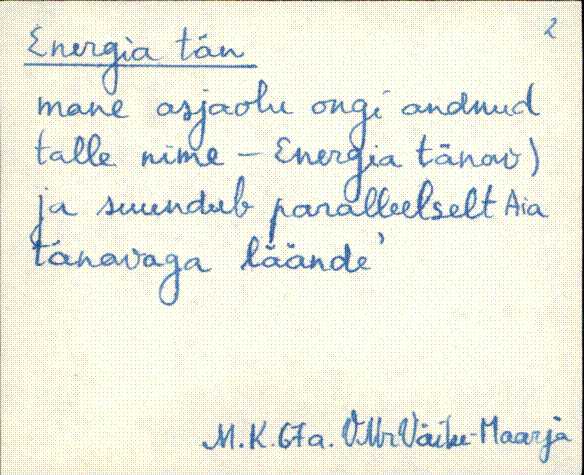 2
Energia tän
mane asjaolu ongi andnud
talle nime - Energia tänav)
ja suundub paralleelselt Aia
tänavaga läände'
M.K. 67a. VMr Väike-Maarja